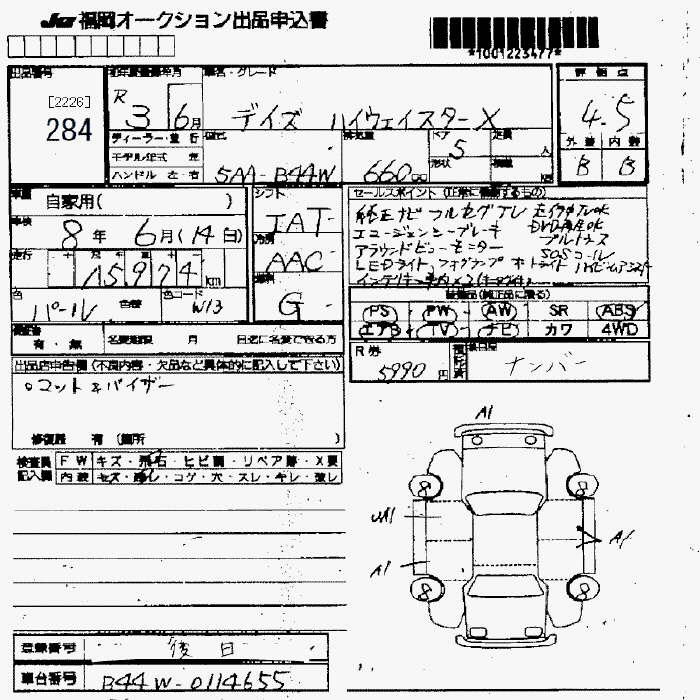 JU 福岡オークション出品申込書
*1001223477*
出品番号
初年度登録年月
車名・グレード
評価点
[2226]
284
R 3 6月
デイズ ハイウェイスターX
4.5
ディーラー・並 行
型式
排気量
ドア
定員
外装 内装
モデル年式 年
形状
5
人
ハンドル 左・右
5AA-B44W
660
B B
車歴
自家用( )
シフト
IAT
車検
8年 6月(14日)
冷房
AAC
走行
15974 km
燃料
G
色
パール
色替
色コード
W13
有・無
名変期限 月 日迄に名変できる方
セールスポイント(正常に機能するもの)
純正ナビ フルセグTV 走行中TVOK
エマージェンシーブレーキ DVD再生OK
アラウンドビューモニター ブルトゥース
LEDライト フォグランプ オートライト ハイビームアシスト
SOSコール
装備品(純正品に限る)
PS PW AW SR ABS
エアB TV ナビ カワ 4WD
R券
5990円
ナンバー
出品店申告欄(不良内容・欠品など具体的に記入して下さい)
。マット&バイザー
修復歴 有 (箇所 )
検査員 FW キズ・飛石・ヒビ割・リペア跡・X要
記入欄 内装 キズ・汚レ・コゲ・穴・スレ・キレ・薄レ
A1
8 8
UA1
A1
A1
8 8
登録番号 後日
車台番号 B44W-0114655